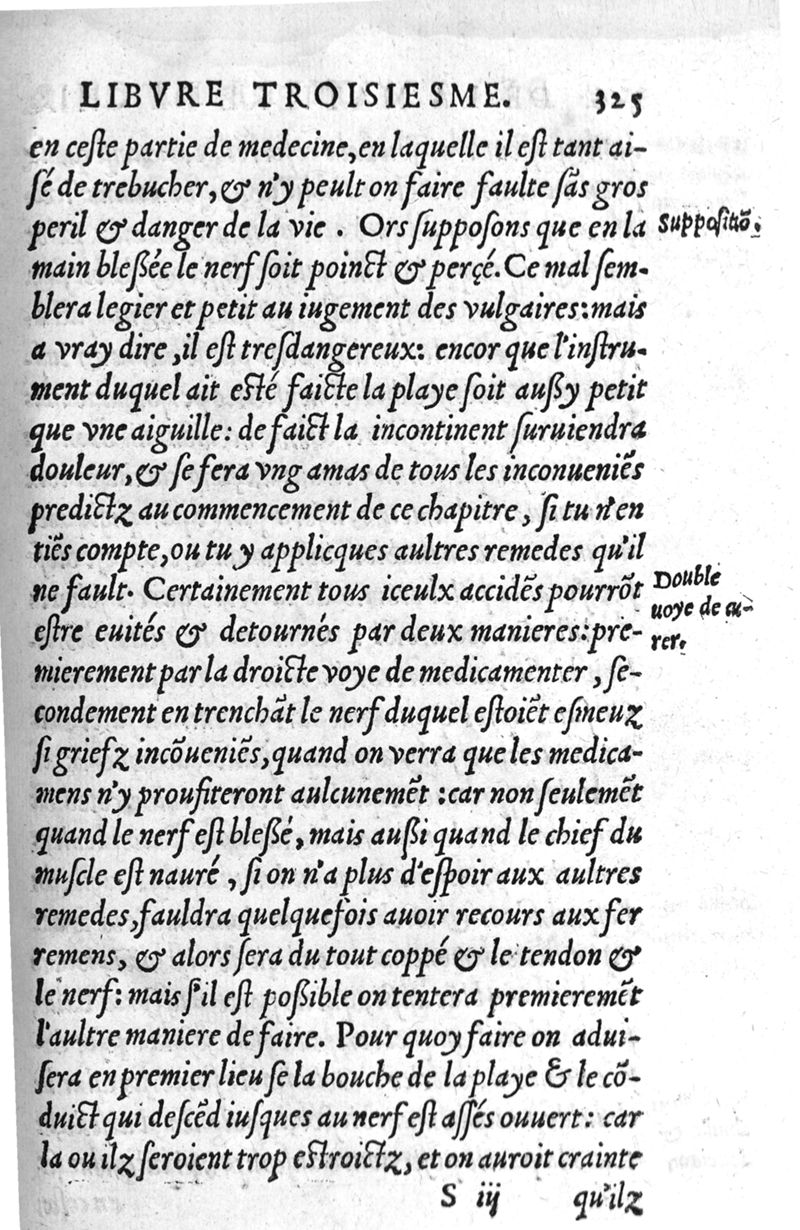 LIBVRE TROISIESME. 325
en ceſte partie de medecine, en laquelle il eſt tant ai-
ſé de trebucher, & n'y peult on faire faulte ſãs gros
peril & danger de la vie . Ors ſuppoſons que en la
Suppoſitiõ.
main bleßée le nerf ſoit poinct & perçé. Ce mal ſem-
blera legier et petit au iugement des vulgaires: mais
a vray dire, il eſt treſdangereux: encor que l'inſtru-
ment duquel ait eſté faicte la playe ſoit außy petit
que vne aiguille: de faict la incontinent ſuruiendra
douleur, & ſe fera vng amas de tous les inconueniẽs
predictz au commencement de ce chapitre, ſi tu n'en
tiẽs compte, ou tu y applicques aultres remedes qu'il
ne fault. Certainement tous iceulx accidẽs pourrõt
Double
uoye de cu-
rer.
eſtre euités & detournés par deux manieres: pre-
mierement par la droicte voye de medicamenter, ſe-
condement en trenchãt le nerf duquel eſtoiẽt eſmeuz
ſi griefz incõueniẽs, quand on verra que les medica-
mens n'y proufiteront aulcunemẽt : car non ſeulemẽt
quand le nerf eſt bleßé, mais außi quand le chief du
muſcle eſt nauré , ſi on n'a plus d'eſpoir aux aultres
remedes, fauldra quelquefois auoir recours aux fer
remens, & alors ſera du tout coppé & le tendon &
le nerf: mais ſ'il eſt poßible on tentera premieremẽt
l'aultre maniere de faire. Pour quoy faire on adui-
ſera en premier lieu ſe la bouche de la playe & le cõ-
duict qui deſcẽd iuſques au nerf eſt aſſés ouuert: car
la ou ilz ſeroient trop eſtroictz, et on auroit crainte
S iij qu'ilz